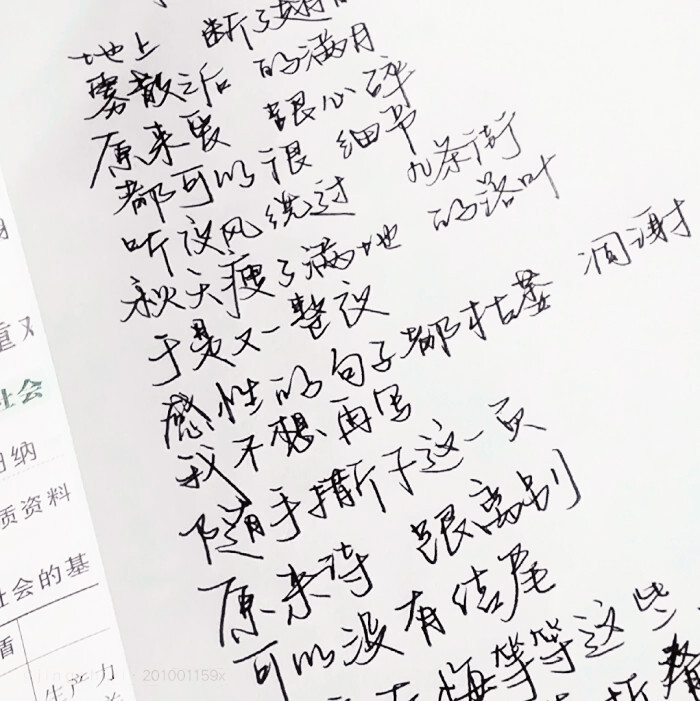 地上 断了翅
雾散之后 的满月
原来爱 跟心碎
都可以很 细节
听夜风绕过 几条街
秋天瘦了满地 的落叶
于是又一整夜
感性的句子都枯萎 凋谢
我不想再写
随手撕下这一页
原来诗 跟离别
可以没有结尾
悔等等这些
重
社会
归纳
质资料
社会的基
盾
生产力
201001159x